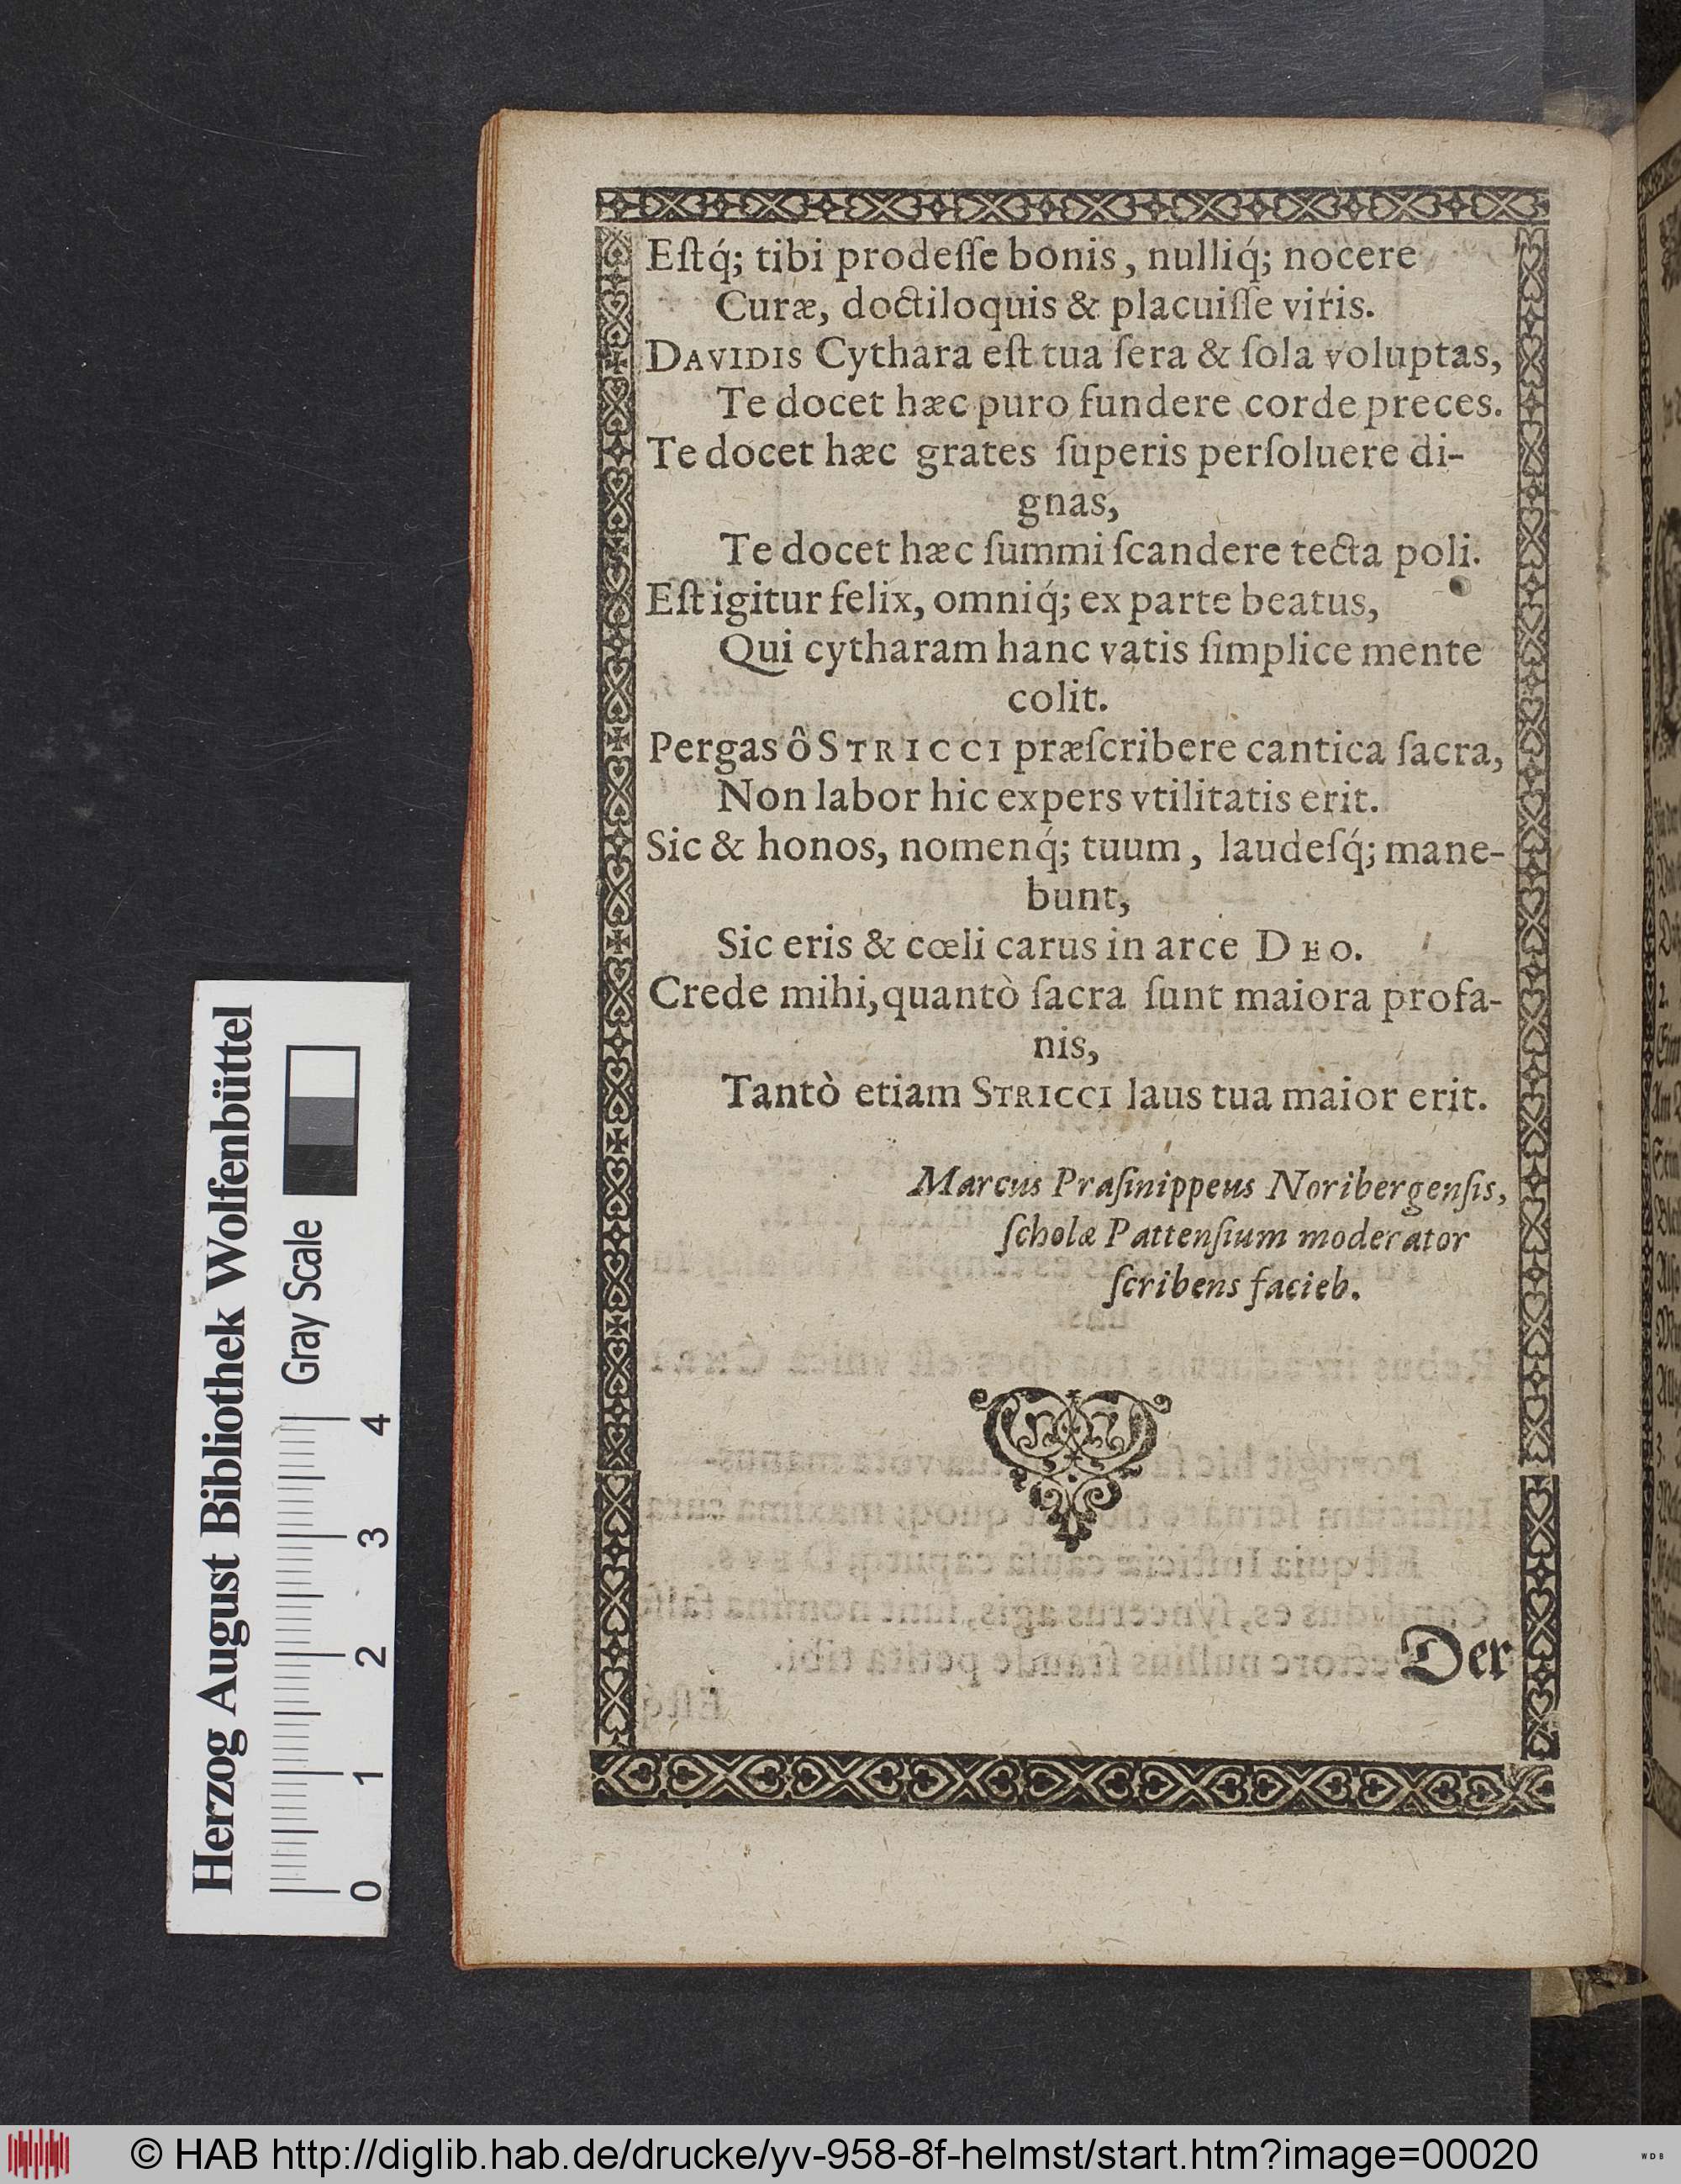 Eſtq́; tibi prodeſſe bonis, nulliq́; nocere
Curæ, doctiloquis & placuiſſe viris.
DAVIDIS Cythara eſt tua ſera & ſola voluptas,
Te docet hæc puro fundere corde preces.
Te docet hæc grates ſuperis perſoluere di-
gnas,
Te docet hæc ſummi ſcandere tecta poli.
Eſt igitur felix, omniq́; ex parte beatus,
Qui cytharam hanc vatis ſimplice mente
colit.
Pergas ô STRICCI præſcribere cantica ſacra,
Non labor hic expers vtilitatis erit.
Sic & honos, nomenq́; tuum, laudeſq́; mane-
bunt,
Sic eris & cœli carus in arce DEO.
Crede mihi, quantò ſacra ſunt maiora profa-
nis,
Tantò etiam STRICCI laus tua maior erit.
Marcus Praſinippeus Noribergenſis,
ſcholæ Pattenſium moderator
ſcribens facieb.
Der
Herzog August Bibliothek Wolfenbüttel
Gray Scale
0 1 2 3 4
© HAB http://diglib.hab.de/drucke/yv-958-8f-helmst/start.htm?image=00020
WDB